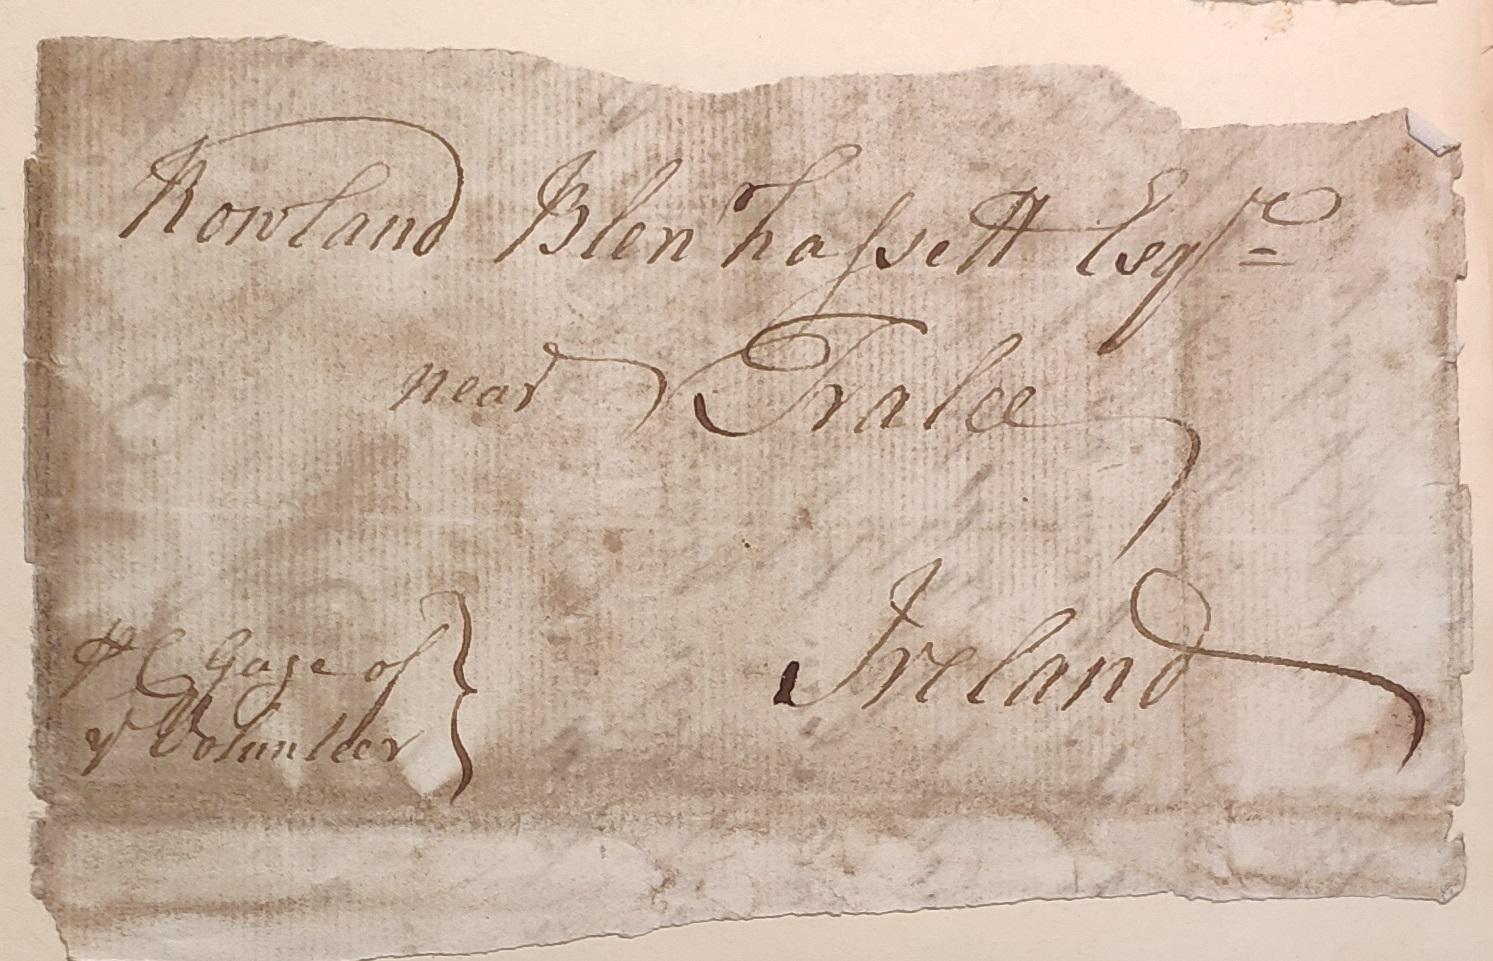 Rowland Blenhassett Esqr
near Tralee
Ireland
Gage of
ye Volunteer